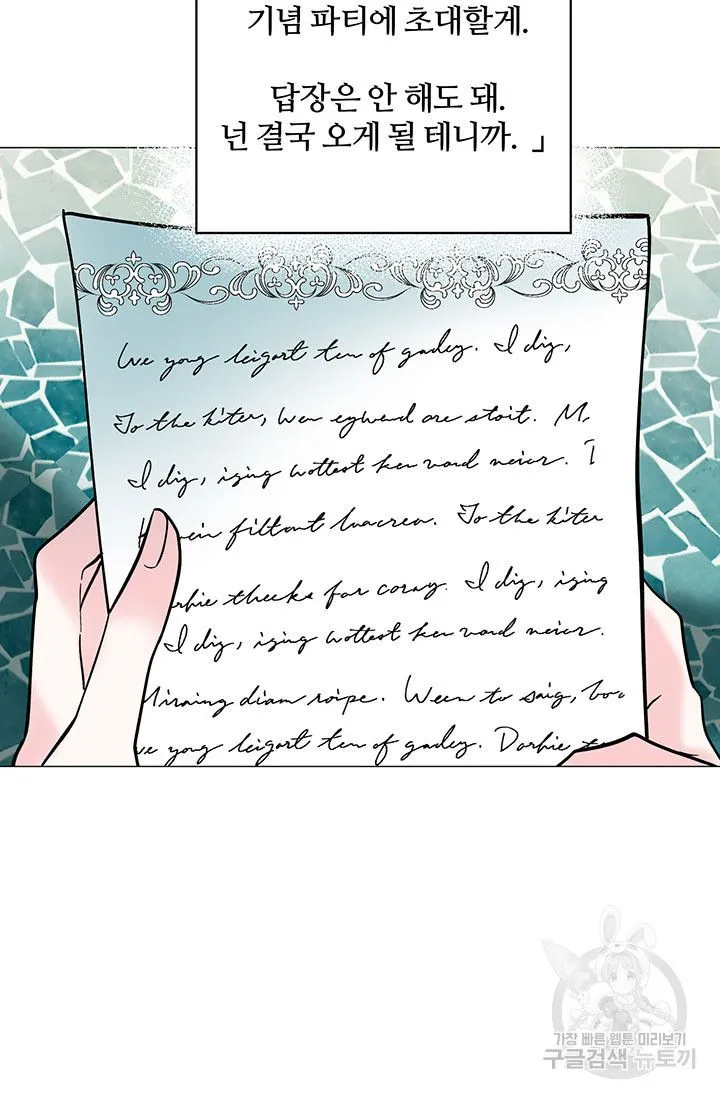 기념 파티에 초대할게.
답장은 안 해도 돼.
넌 결국 오게 될 테니까. 」
We yong leigart ten of gadey. I dig,
To the kiter, Wen egwend are stoit. M
I dig, iging wottest ken vard neier. I
filtont To the kiter
thecks for coray. I dig, iging
I dig, iging wottest ken vard neier.
diam roipe. Ween to saig,
yong leigart ten of gadey. Dorhie
가장 빠른 웹툰 미리보기
구글검색 뉴토끼